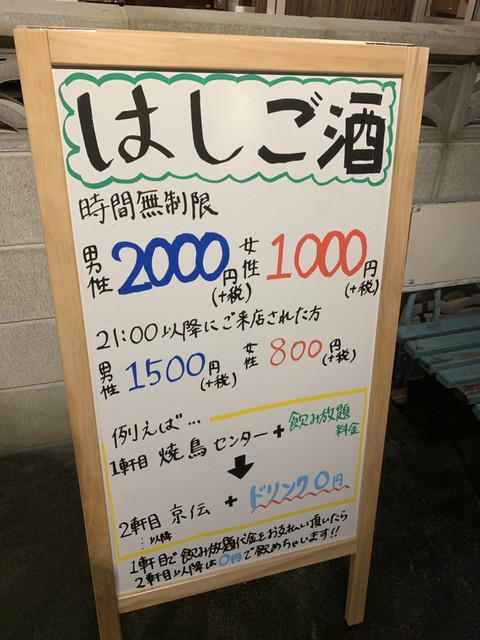 はしご酒
時間無制限
男性2000円(+税) 女性1000円(+税)
21:00以降にご来店された方
男性1500円(+税) 女性800円(+税)
例えば…
1軒目 焼鳥センター+飲み放題料金
2軒目…以降 京伝 + ドリンク0円
1軒目で飲み放題代金をお支払い頂いたら
2軒目以降は0円で飲めちゃいます!!